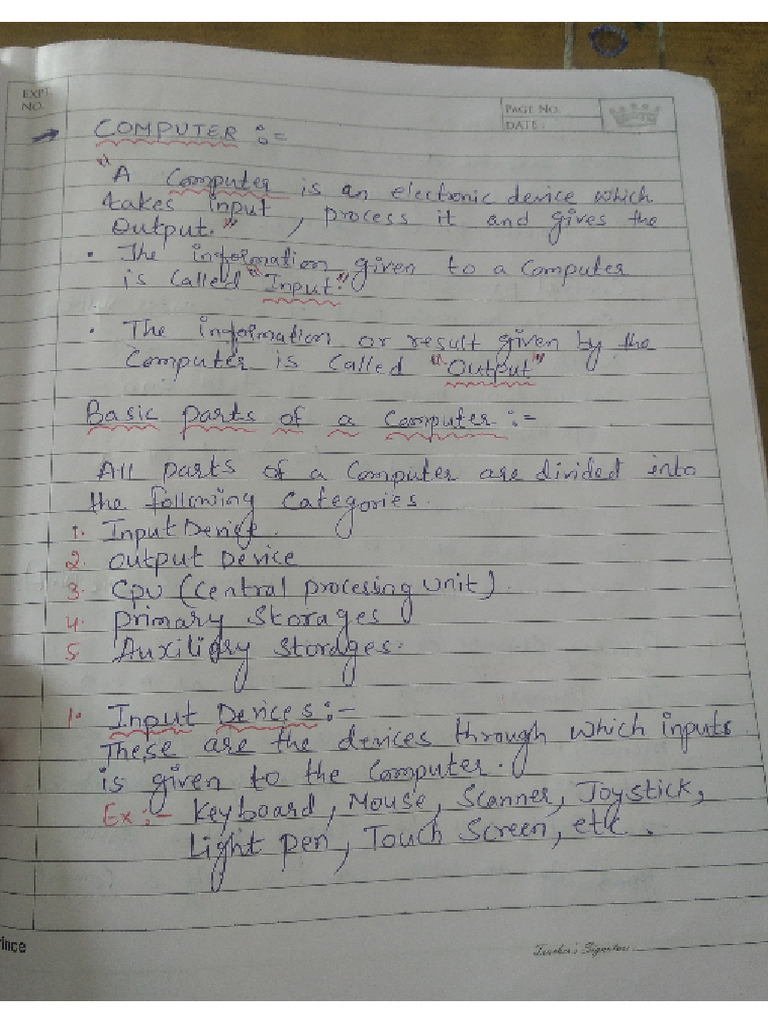 EXPT. NO.
PAGE NO.
DATE:
→ COMPUTER :=
"A Computer is an electronic device which
takes input , process it and gives the
Output."
• The information given to a Computer
is Called "Input."
• The information or result given by the
Computer is Called "Output"
Basic parts of a Computer :-
All parts of a Computer are divided into
the following Categories.
1. Input Device.
2. Output Device
3. CPU (Central processing unit)
4. Primary Storages
5. Auxiliary Storages.
1. Input Devices :-
These are the devices through which inputs
is given to the Computer.
Ex :- Keyboard, Mouse, Scanner, Joystick,
Light pen, Touch Screen, etc.
rince
Teacher's Signature